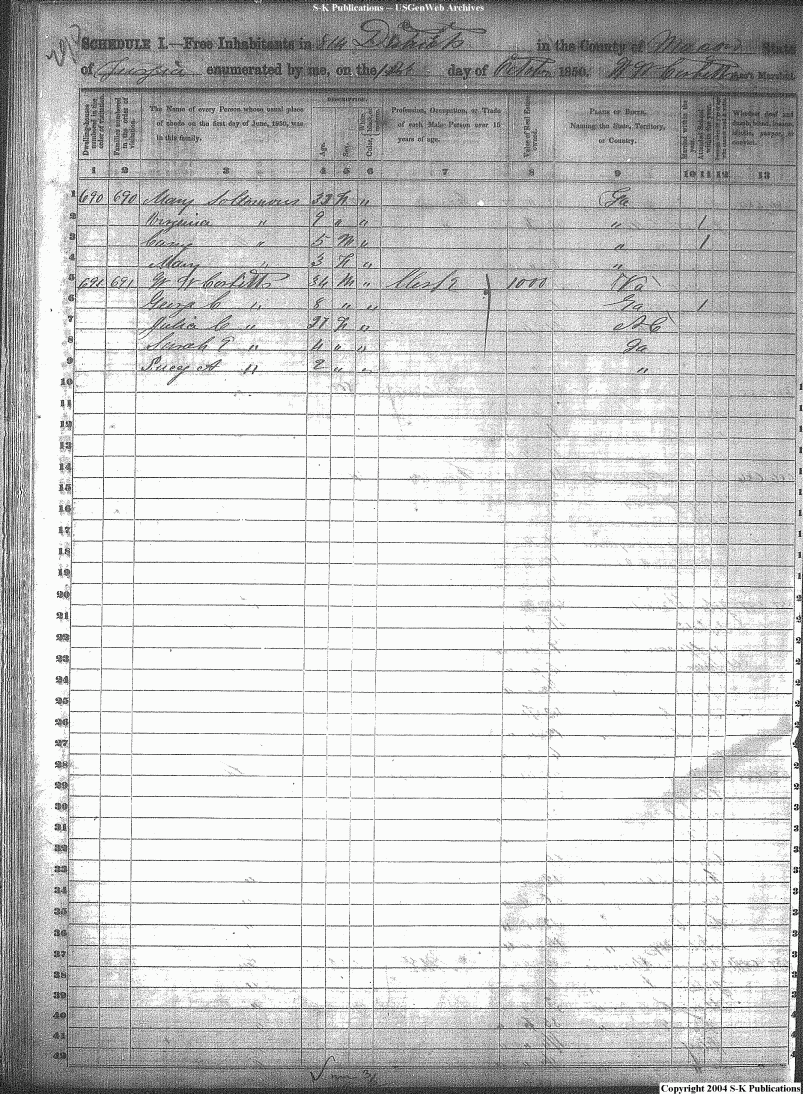 S-K Publications -- USGenWeb Archives
SCHEDULE I.—Free Inhabitants in 8th District in the County of Macon State
of Georgia enumerated by me, on the day of October 1850. W W Corbitt Ass't Marshal.
Dwelling-houses numbered in the order of visitation.
Families numbered in the order of visitation.
The Name of every Person whose usual place of abode on the first day of June, 1850, was in this family.
DESCRIPTION.
Age.
Sex.
Color,
Profession, Occupation, or Trade of each Male Person over 15 years of age.
Value of Real Estate owned.
PLACE OF BIRTH. Naming the State, Territory, or Country.
1 2 3 4 5 6 7 8 9 10 11 12 13
1 690 690 Mary Sollomons 32 F " Ga
2 Virginia " 9 " " " 1
3 " 5 M " " 1
4 Mary " 3 F " "
5 691 691 W W Corbitt 34 M " 1000 Va
6 C " 8 " " Ga 1
7 Julia C " 27 F " N C
8 Sarah E " 4 " " Ga
9 A " 2 " " "
10
11
12
13
14
15
16
17
18
19
20
21
22
23
24
25
26
27
28
29
30
31
32
33
34
35
36
37
38
39
40
41
42
Copyright 2004 S-K Publications